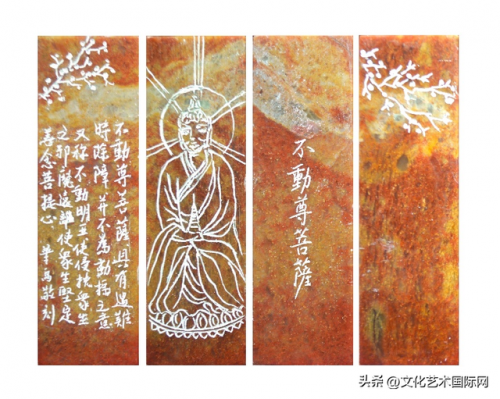 不動尊菩薩具有遇難
時除障并不為動搖之意
又称不動明王使衆生
之邪魔遠離使衆生堅定
善念菩提心 敬刻
不動尊菩薩
头条 @文化艺术国际网